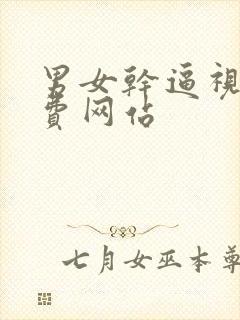 男女幹逼視
費网站
七月女巫本尊